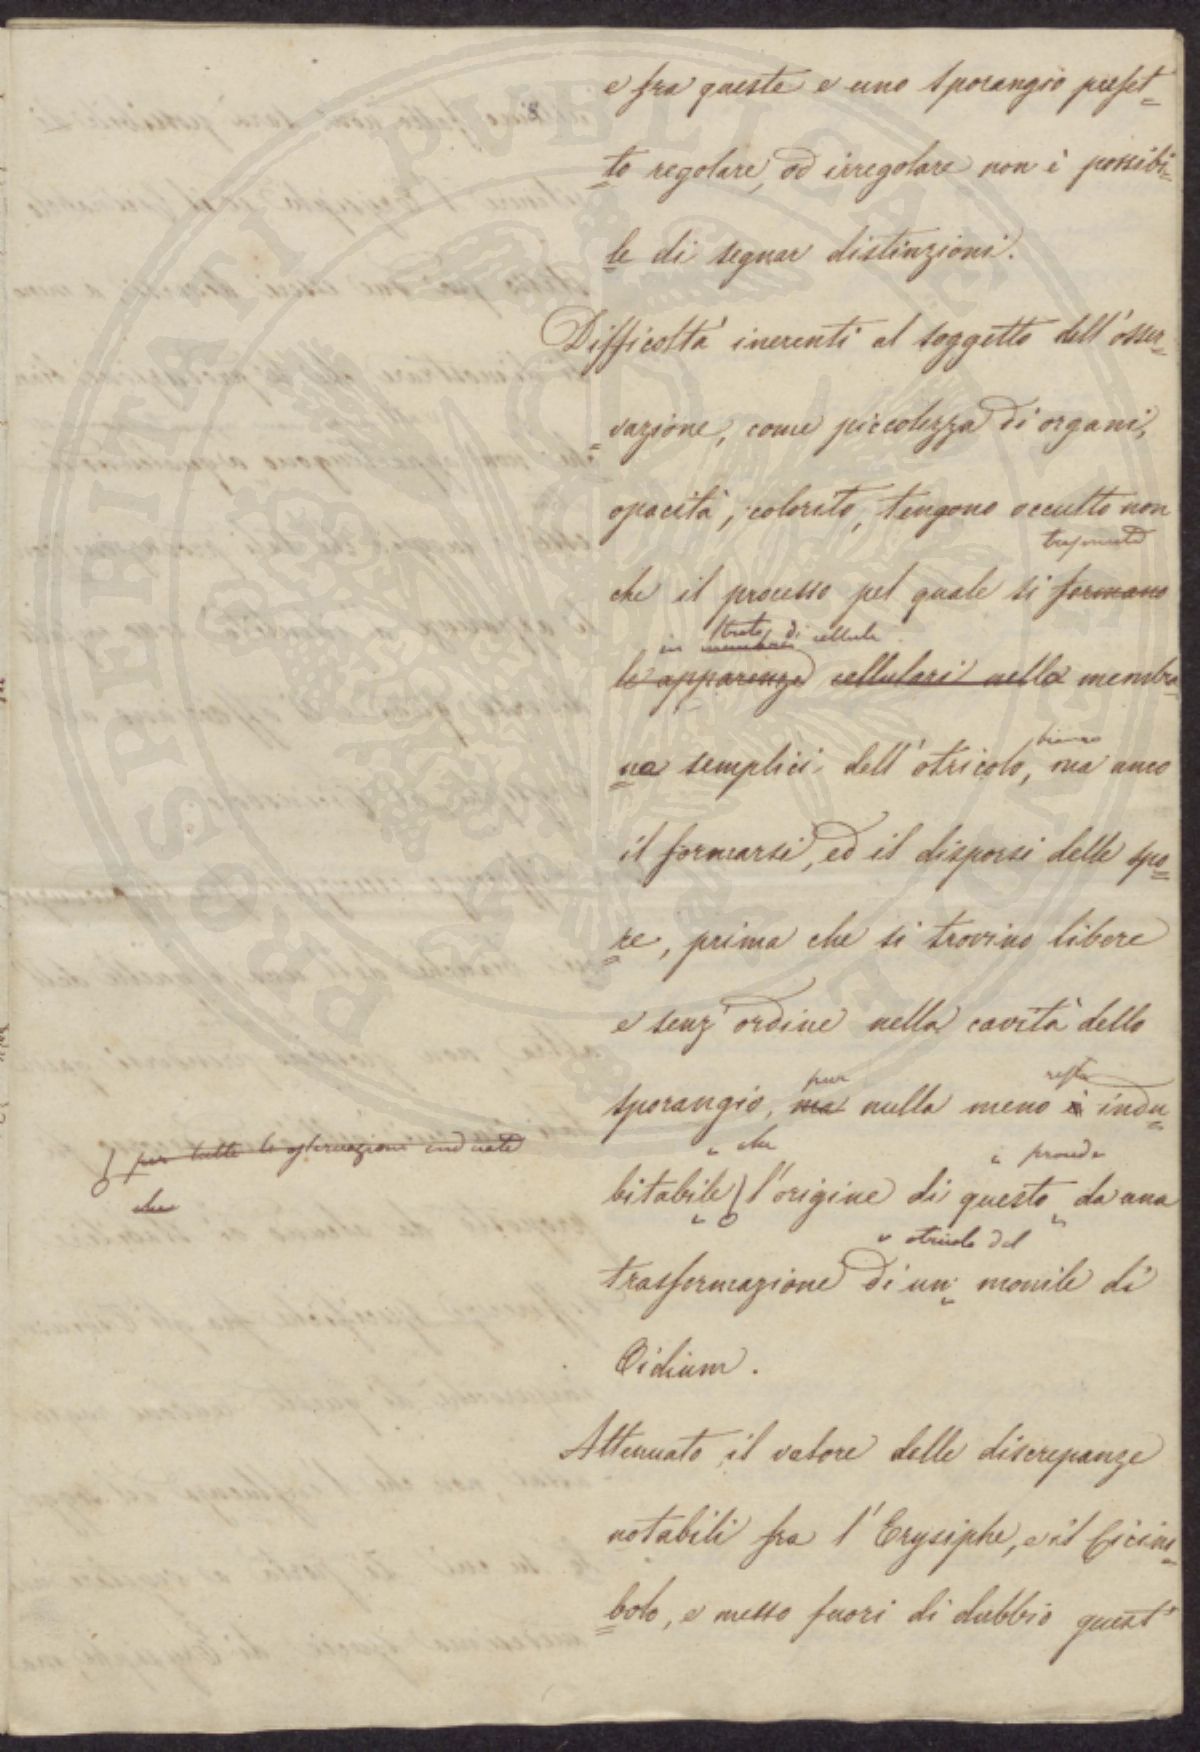 e fra queste e uno sporangio perfet-
to regolare, od irregolare non è possibi-
le di segnar distinzioni.
Difficoltà inerenti al soggetto dell'osser-
vazione, come piccolezza di organi,
opacità, colorito, tengono occulto non
che il processo pel quale si formano
in strato di cellule
le apparenze cellulari nella membra-
na semplici dell'otricolo, ma anco
il formarsi, ed il disporsi delle spo-
re, prima che si trovino libere
e senz'ordine nella cavità dello
pur resta
sporangio, ma nulla meno è indu-
per tutte le osservazioni indicate
che
che provede
bitabile l'origine di questo da una
otricolo del
trasformazione di un monile di
Oidium.
Attenuato il valore delle discrepanze
notabili fra l'Erysiphe, e il Cicino-
bolo, e messo fuori di dubbio quest'
PROSPERITATI PUBLICAE